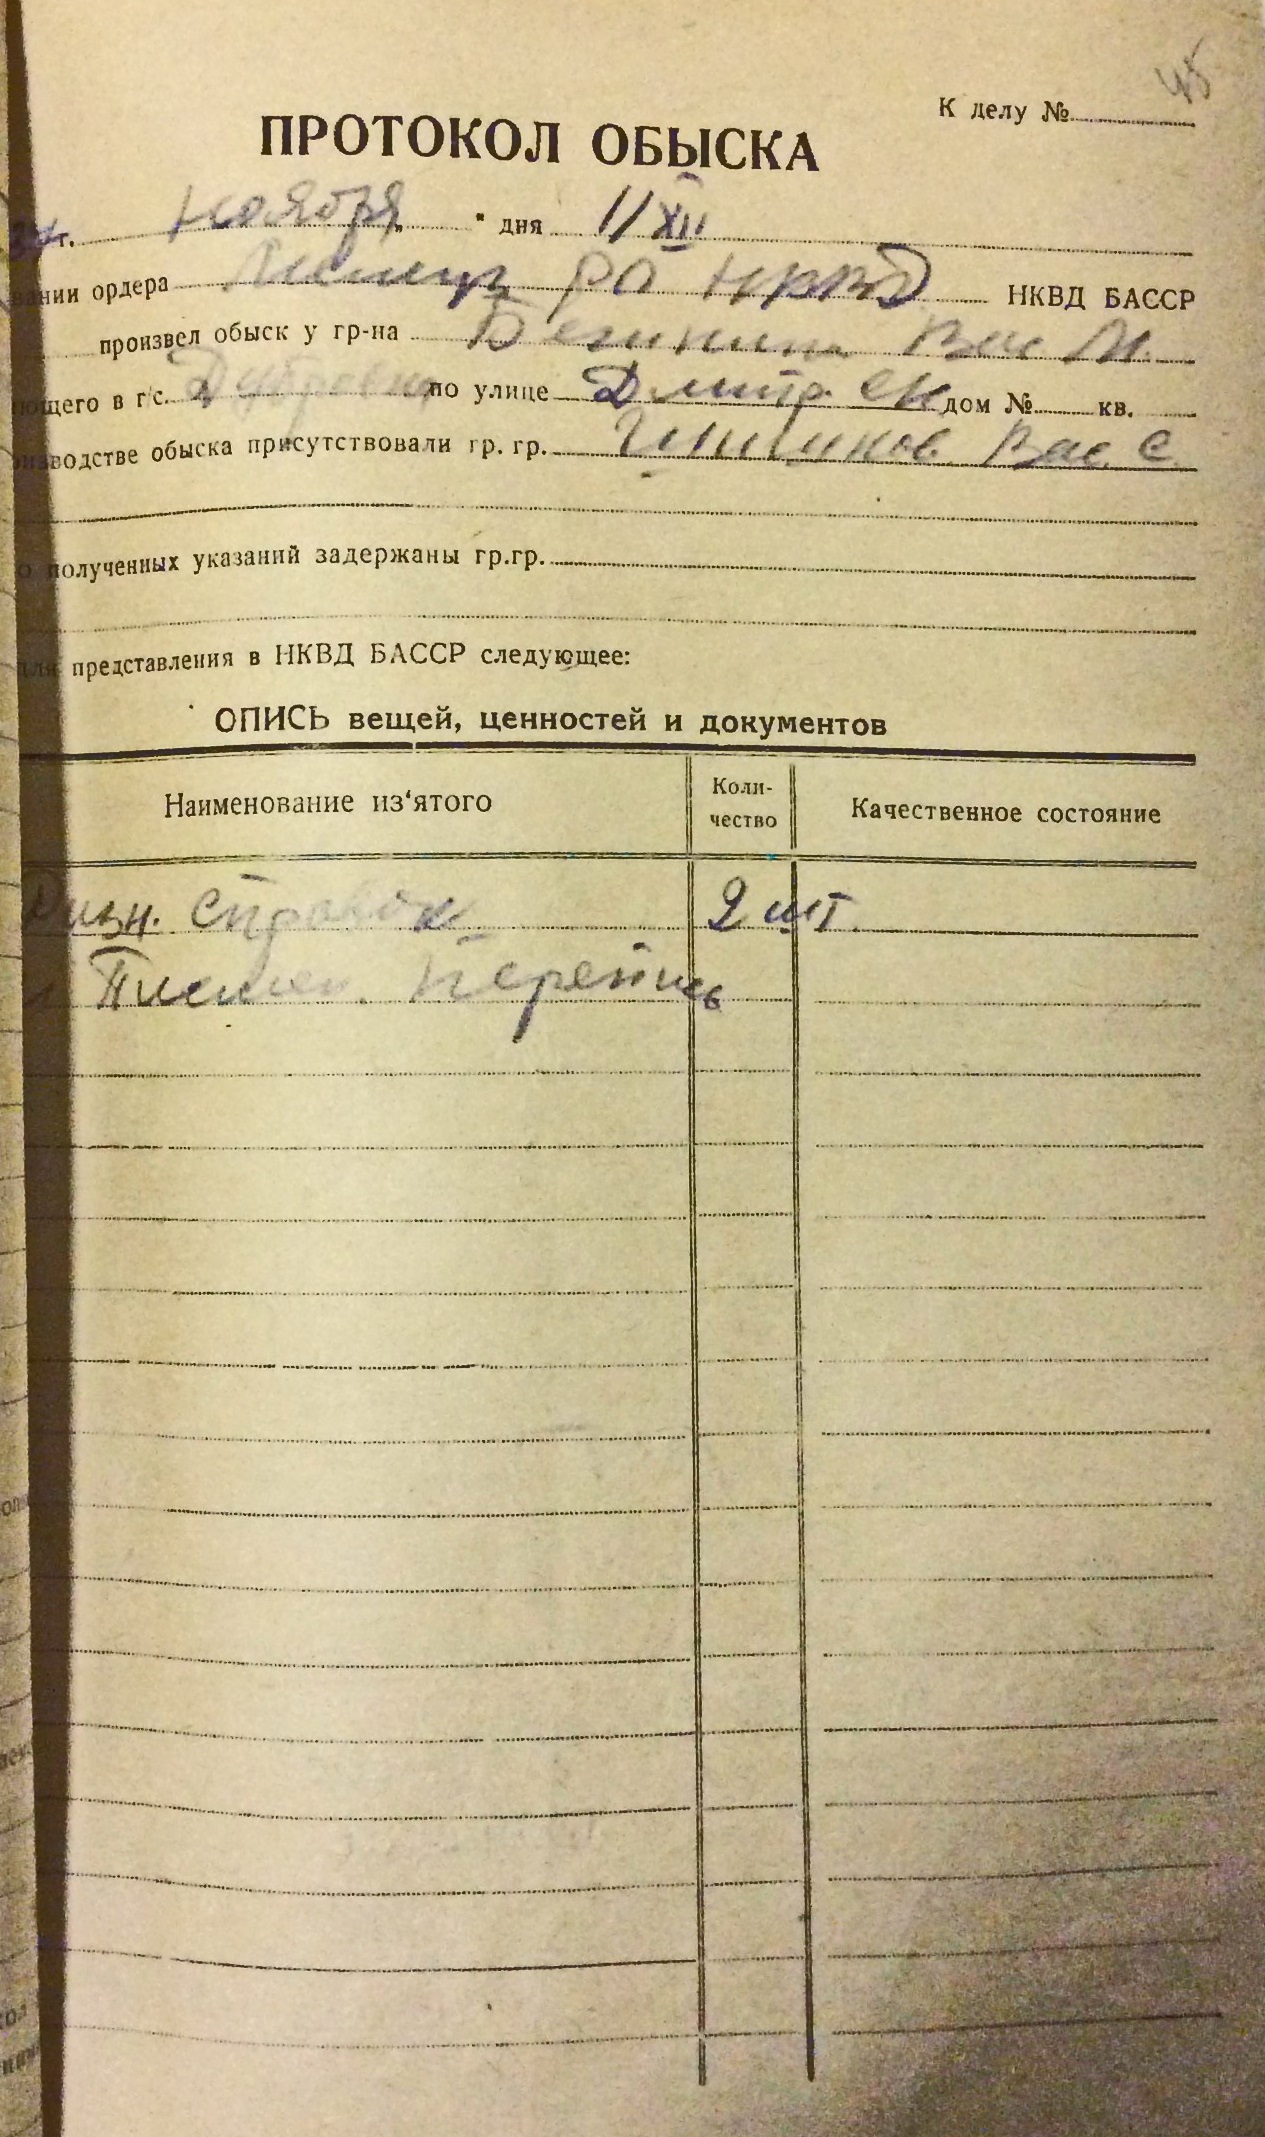 45
К делу №
ПРОТОКОЛ ОБЫСКА
г. ноября " дня 11 XII
вании ордера РО НКВД НКВД БАССР
произвел обыск у гр-на Вас И.
ющего в г с. по улице Дмитр. дом № кв.
изводстве обыска присутствовали гр. гр. Шишков Вас. С.
о полученных указаний задержаны гр.гр.
для представления в НКВД БАССР следующее:
ОПИСЬ вещей, ценностей и документов
Наименование из'ятого
Коли-
чество
Качественное состояние
Разн. Справок 2 шт.
Письмен. Перепись